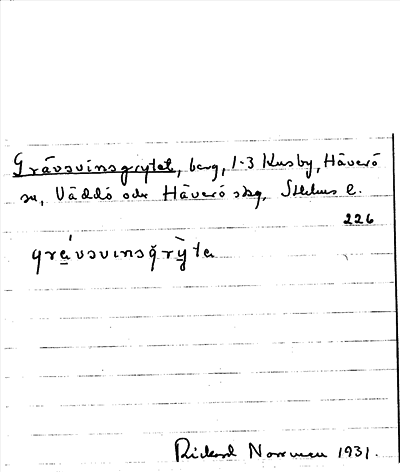 Grävsvinsgrytet, berg, 1-3 Kusby, Häverö
sn, Väddö och Häverö skg, Sthlms l.
226
grävsvinsgrỳte
Rickard Norrman 1931.